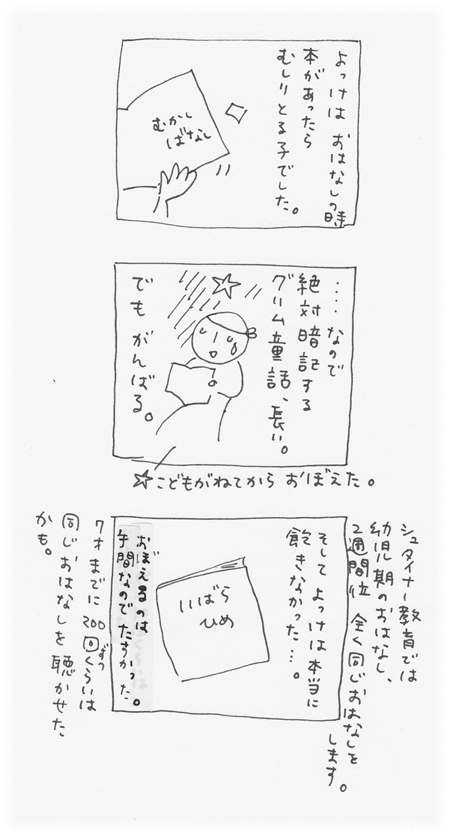 よっけは おはなしの時
本があったら
むしりとる子でした。
むかし
ばなし
‥‥なので
絶対暗記する
グリム童話、長い。
でもがんばる。
☆こどもがねてから おぼえた。
シュタイナー教育では
幼児期のおはなし、
2週間位 全く同じおはなしを
します。
そして よっけは本当に
飽きなかった…。
いばら
ひめ
おぼえるのは
年間なのでたすかった。
7才までに 200回ずつくらいは
同じおはなしを 聴かせた
かも。